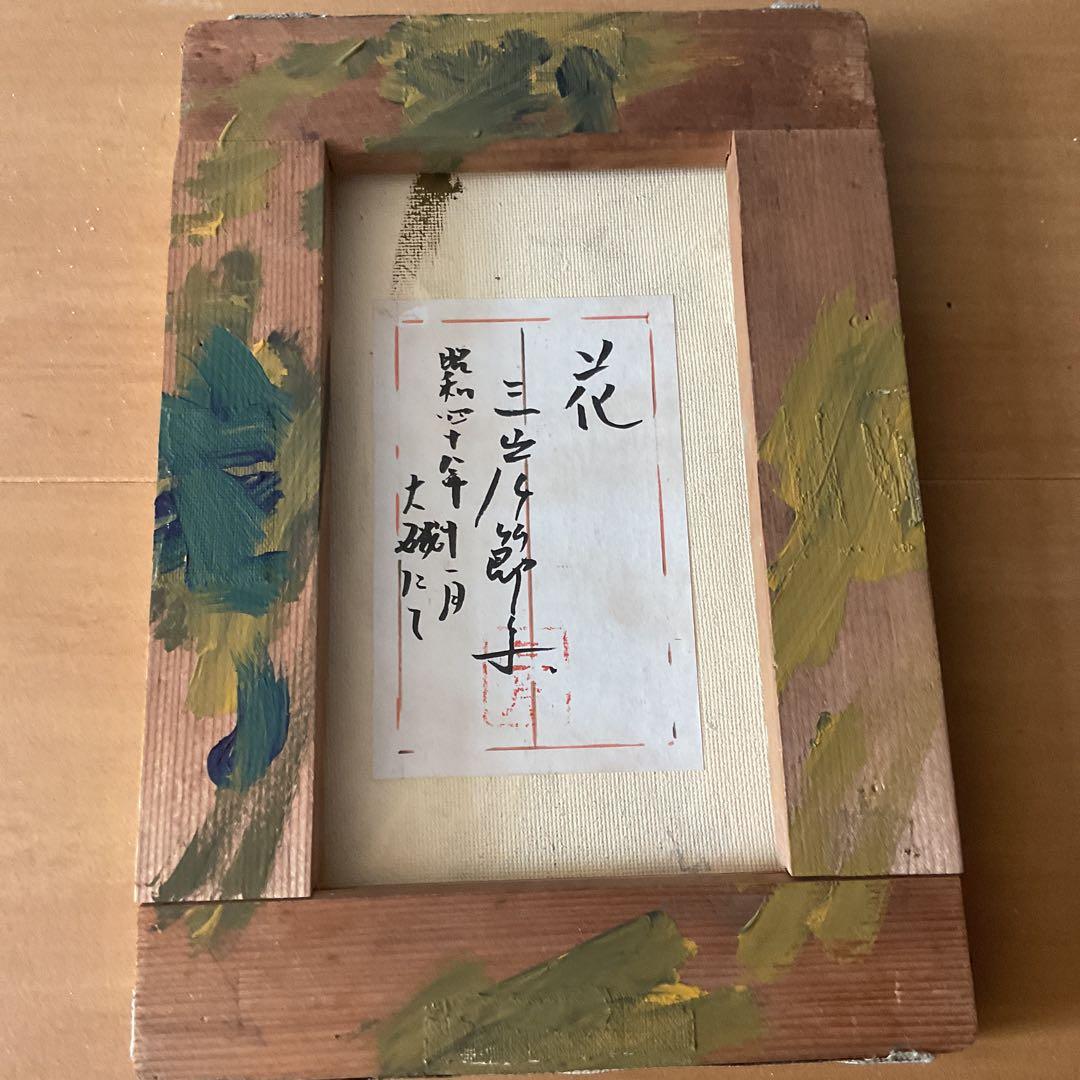 花
三岸節子
昭和四十年一月
大磯にて